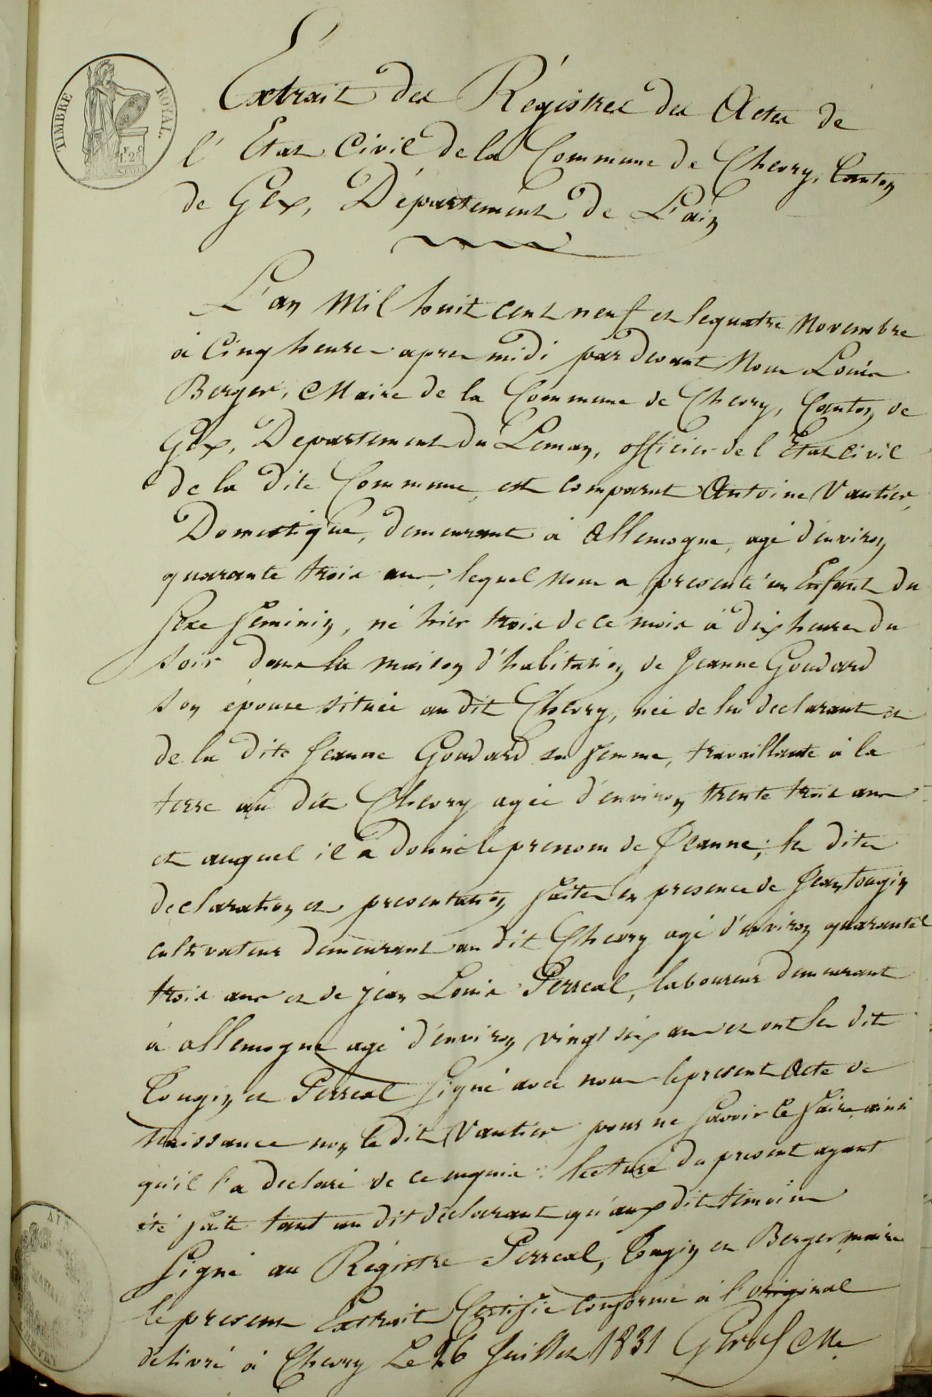 TIMBRE ROYAL
Extrait des Régistres des Actes de
l'Etat Civil de la Commune de Chevry, Canton
de Gex, Département de L'ain
L'an Mil huit cent neuf et le quatre Novembre
à Cinq heures apres midi par devant Nous Louis
Berger, Maire de la Commune de Chevry, Canton de
Gex, Departement du Leman, officier de l'Etat Civil
de la dite Commune, est comparut Antoine Vautier,
Domestique, demeurant à allemogne, agé d'environ
quarante trois ans, lequel nous a presenté un Enfant du
Sexe feminin, né hier trois de ce mois à dix heures du
soir dans la maison d'habitation de Jeanne Goudard
son épouse située au dit Chevry, née de lui declarant et
de la dite Jeanne Goudard sa femme, travaillante à la
terre au dit Chevry agée d'environ trente trois ans
et auquel il a donné le prenom de Jeanne; la dite
declaration et presentation faites en presence de Jean Tougin
cultivateur demeurant au dit Chevry agé d'environ quarante
trois ans et de jean Louis Perreal, laboureur demeurant
à allemogne agé d'environ vingt six ans et ont les dit
Tougin et Perreal Signé avec nous le present Acte de
Naissance non le dit Vautier pour ne savoir le faire ainsi
qu'il l'a declaré de ce enquis: lecture du present ayant
été faite tant au dit declarant qu'aux dit témoins
Signé au Régistre Perreal, Tougin et Berger maire
le present Extrait Certifié Conforme à l'original
delivré à Chevry Le 26 Juillet 1831